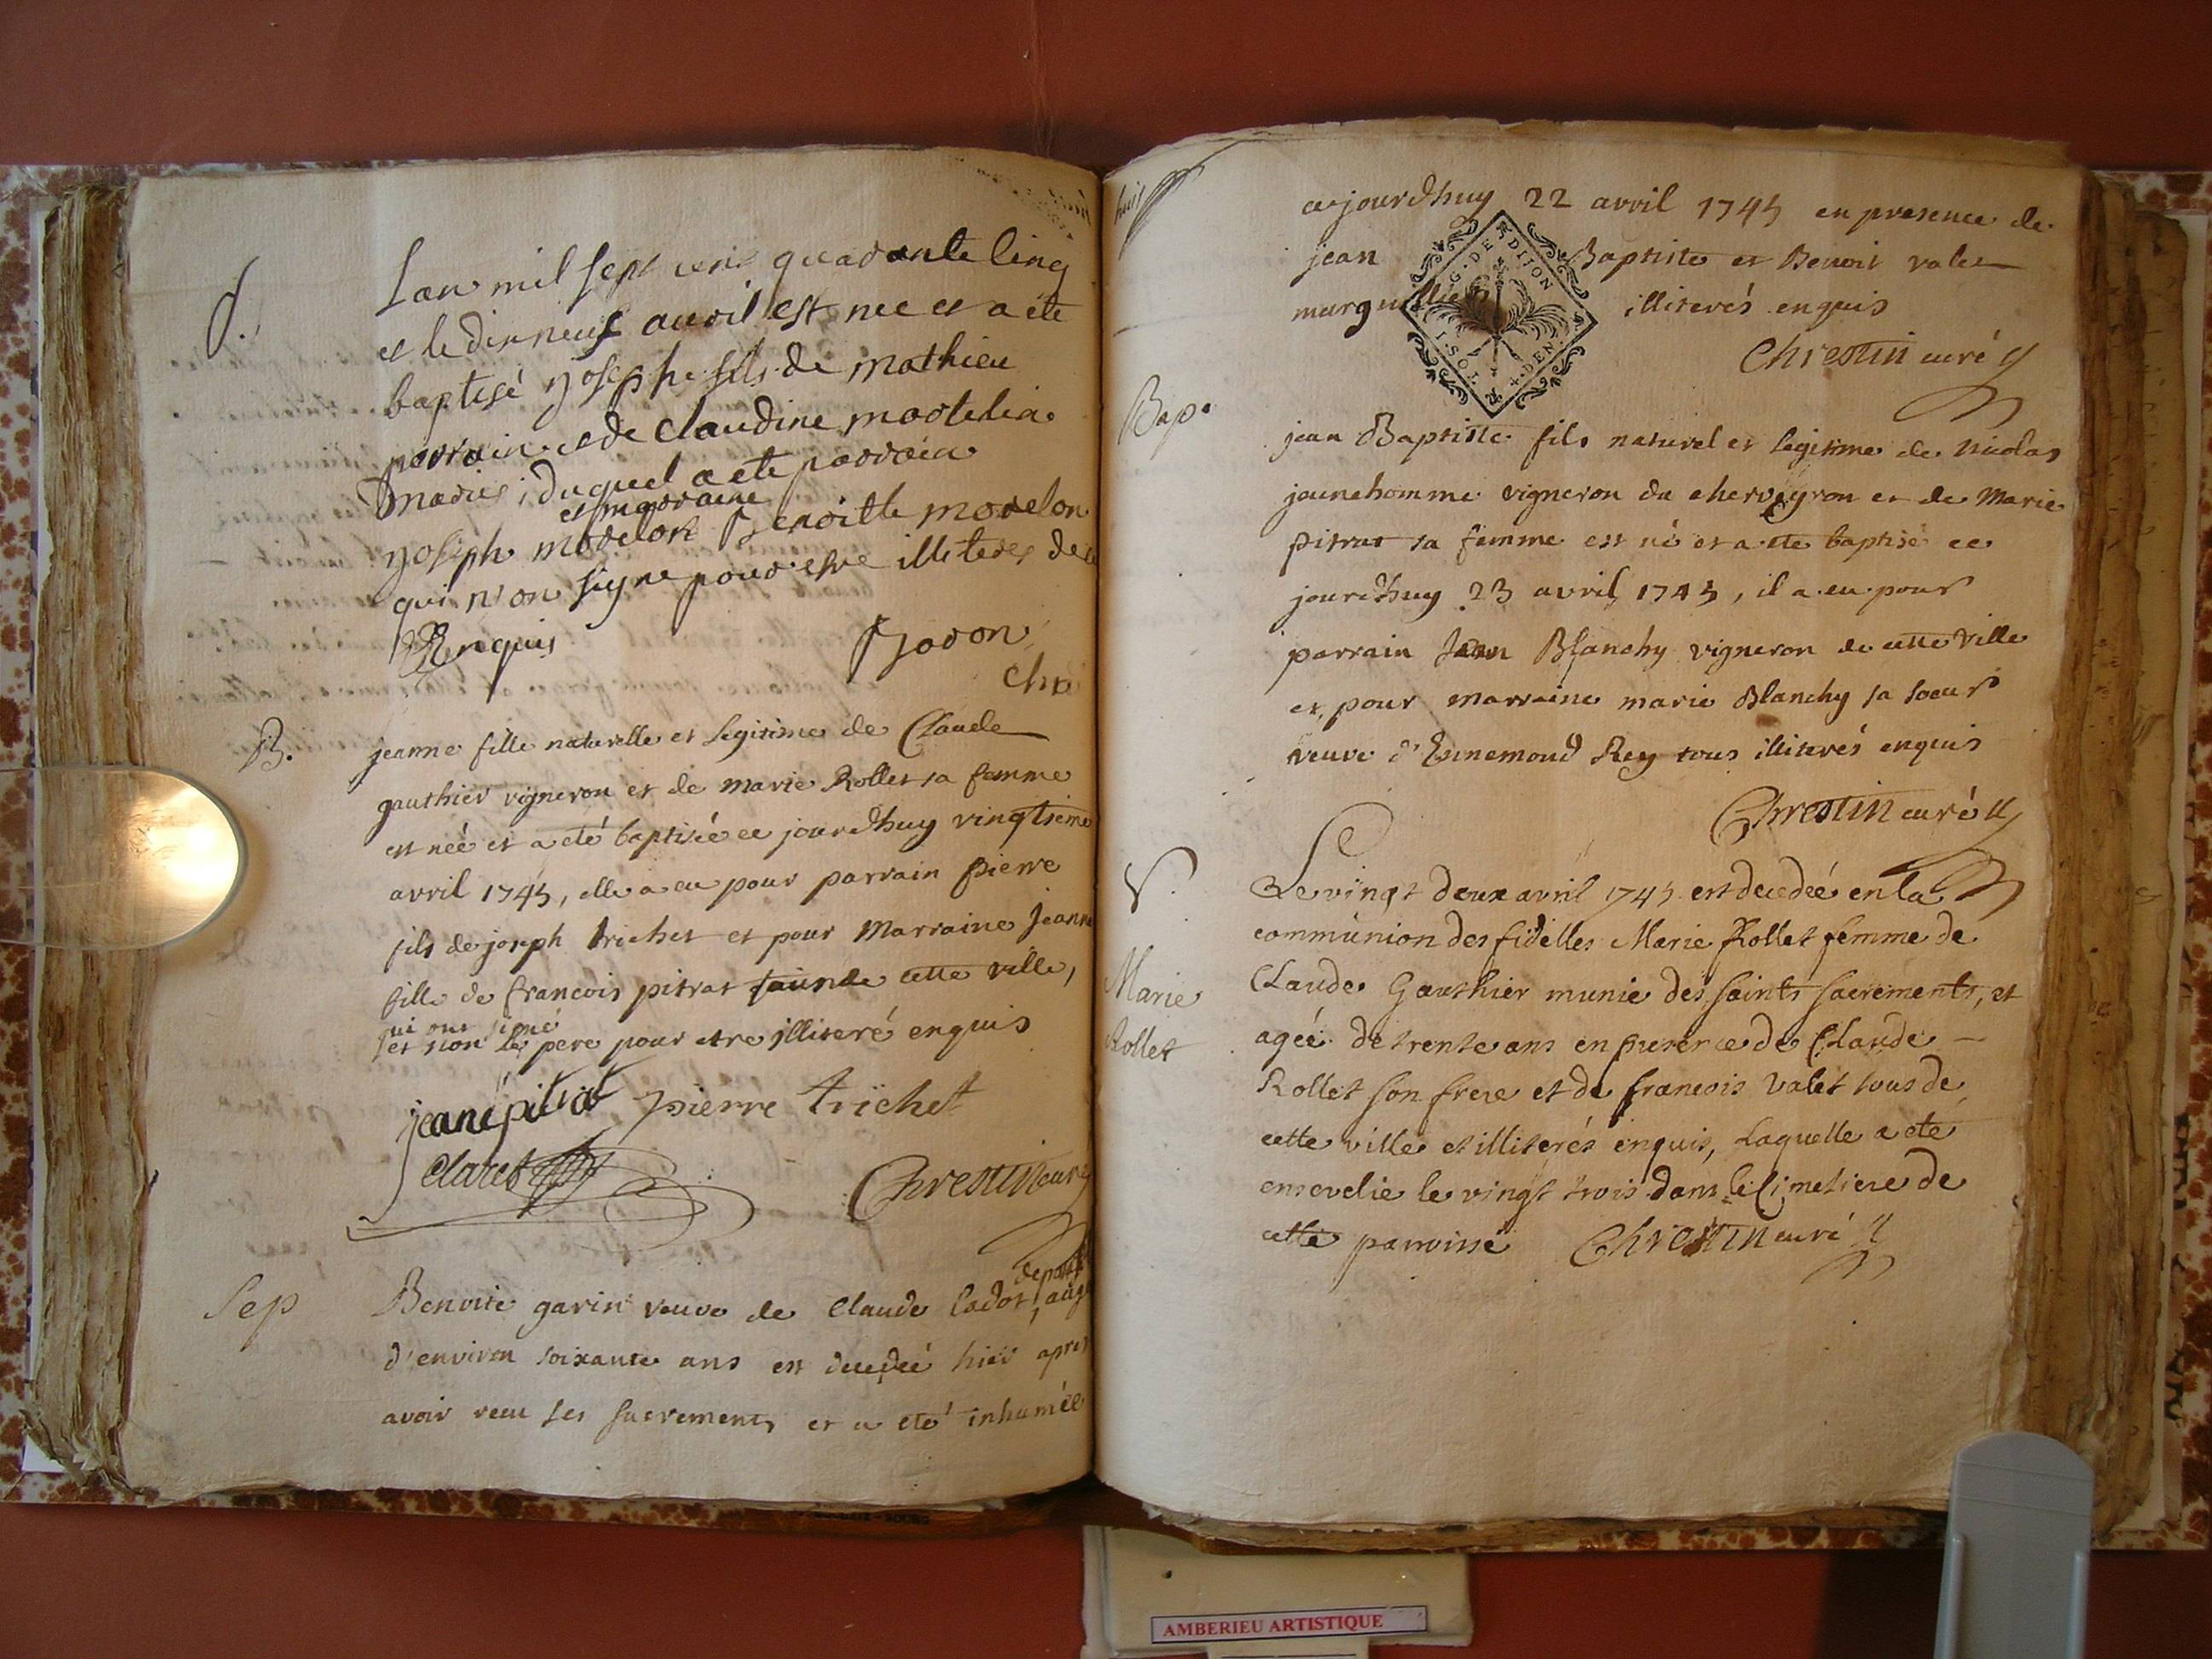 d.
Lan mil sept cens quadante cinq
et le dixneuf avoil est nee et a ete
baptesé yoseph fils de mathieu
perrain et de claudine mostelia
mariés, duquel a ete parrain
et marraine
yoseph morelon Benoitte morelon
qui n'on signe pour estre illiteres de ce
Enquis
Bovon
B.
jeanne fille naturelle et legitime de Claude
gauthier vigneron et de marie Rollet sa femme
est née et a eté baptisée ce jourdhuy vingtieme
avril 1745, elle a eu pour parrain pierre
fils de joseph trichet et pour Marraine jeanne
fille de francois pitrat de cette ville,
qui ont signé
et non le pere pour etre illiteré enquis
jeane pitrat pierre trichet
Claret
Chrestin curé
Sep
Benoite garin veuve de Claude Cadot, agé
d'environ soixante ans est decedeé hier apres
avoir receu ses sacrements et a eté inhumée
huit
cejourdhuy 22 avril 1745 en presence de
jean Baptiste et Benoit valet
marguillier illiterés enquis
G. DE DIJON
4. DEN.
Chrestin curé
Bap.
jean Baptiste fils naturel et legitime de nicolas
jeunehomme vigneron du cherveyron et de Marie
pitrat sa femme est né et a ete baptisé ce
jourdhuy 23 avril 1745, il a eu pour
parrain Jean Blanchy vigneron de cette ville
et pour marraine marie Blanchy sa soeur
veuve d'Ennemond Rey tous illiterés enquis
Chrestin curé
S.
Marie
Rollet
Le vingt deux avril 1745 est decedeé en la
communion des fidelles Marie Rollet femme de
Claude Gauthier munie des saints sacrements, et
ageé de trente ans en presence de Claude
Rollet son frere et de francois Valet tous de
cette ville et illiterés enquis, Laquelle a eté
ensevelie le vingt trois dans le Cimetiere de
cette parroisse Chrestin curé
AMBERIEU ARTISTIQUE